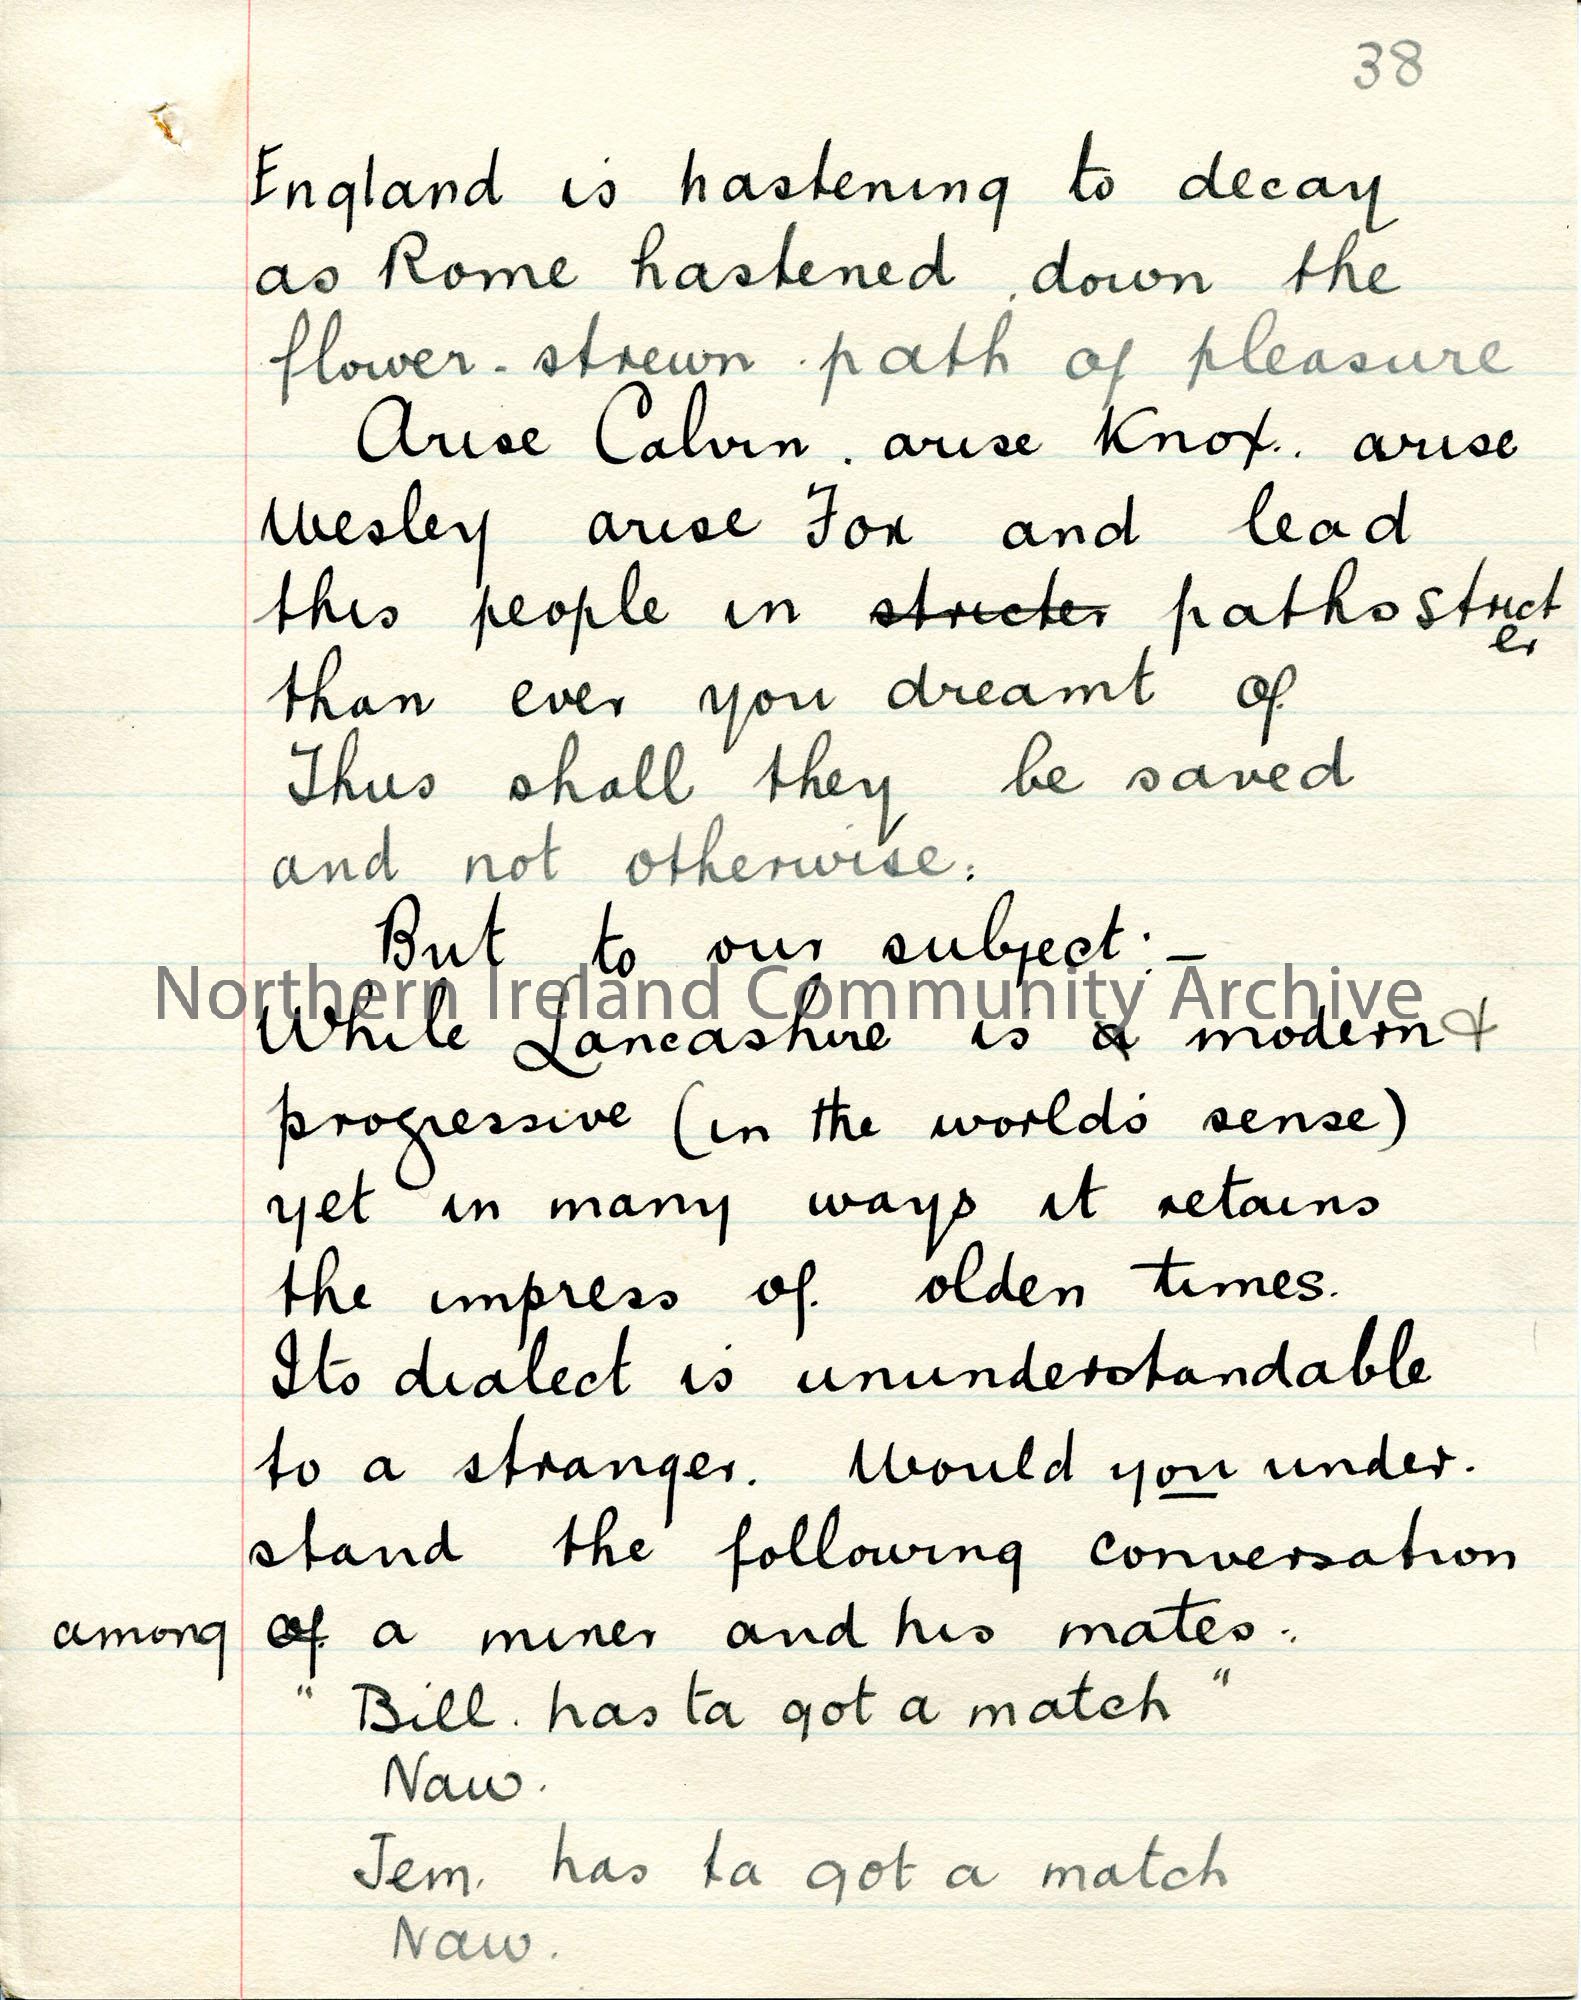 38
England is hastening to decay
as Rome hastened down the
flower-strewn path of pleasure
Arise Calvin. arise Knox.. arise
Wesley arise Fox and lead
this people in stricter paths strict
er
than ever you dreamt of
Thus shall they be saved
and not otherwise.
But to our subject:—
Northern Ireland Community Archive
While Lancashire is a modern &
progressive (in the world's sense)
yet in many ways it retains
the impress of olden times.
Its dialect is ununderstandable
to a stranger. Would you under.
stand the following conversation
among of a miner and his mates.
" Bill. has ta got a match "
Naw.
Jem. has ta got a match
Naw.